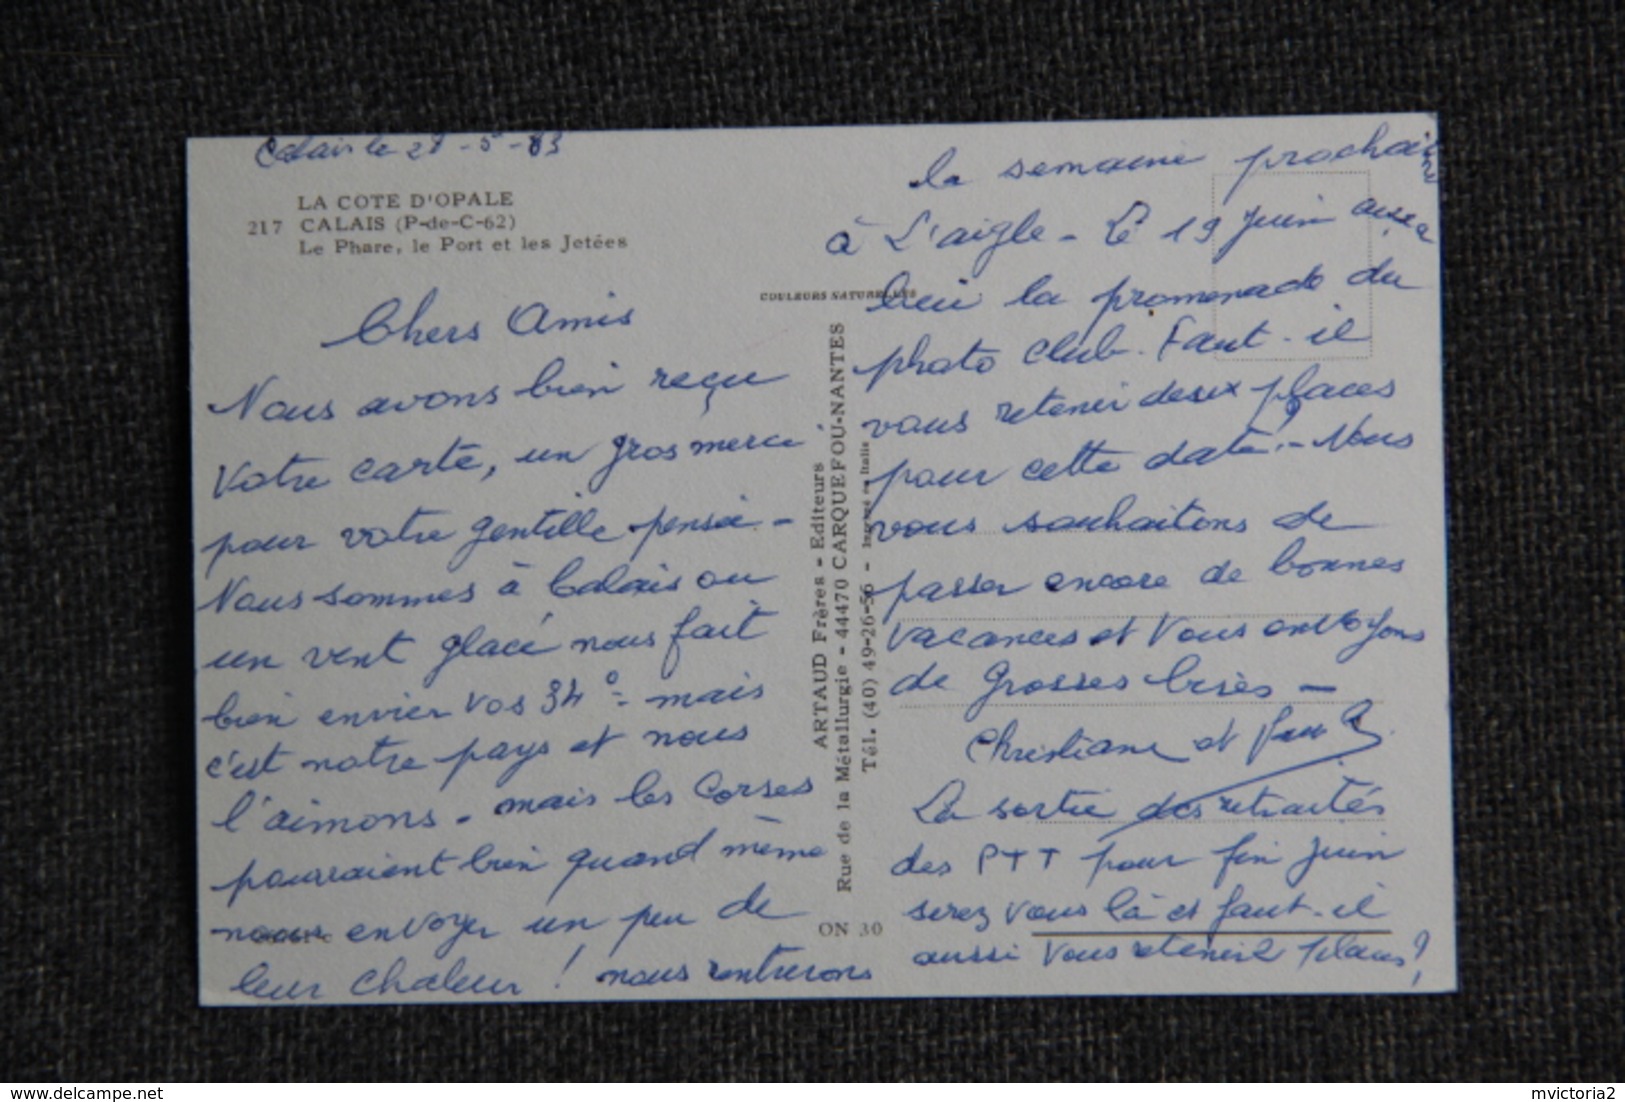 Calais le 28-5-83
LA COTE D'OPALE
217 CALAIS (P-de-C-62)
Le Phare, le Port et les Jetées
COULEURS NATURELLES
Chers Amis
Nous avons bien reçu
votre carte, un gros merci
pour votre gentille pensée -
Nous sommes à Calais ou
un vent glacé nous fait
bien envier vos 34° - mais
c'est notre pays et nous
l'aimons - mais les Corses
pourraient bien quand même
nous envoyer un peu de
leur chaleur ! nous rentrerons
la semaine prochaine
à L'aigle - Le 19 juin aura
lieu la promenade du
photo club - Faut-il
vous retenir deux places
pour cette date ? - Nous
vous souhaitons de
passer encore de bonnes
vacances et vous envoyons
de grosses bises -
Christiane et
La sortie des retraités
des PTT pour fin juin
serez vous là et faut-il
aussi vous retenir 2 places ?
ARTAUD Frères - Editeurs
Rue de la Métallurgie - 44470 CARQUEFOU-NANTES
Tél. (40) 49-26-56 - Imprimé en Italie
ON 30
mvictoria2